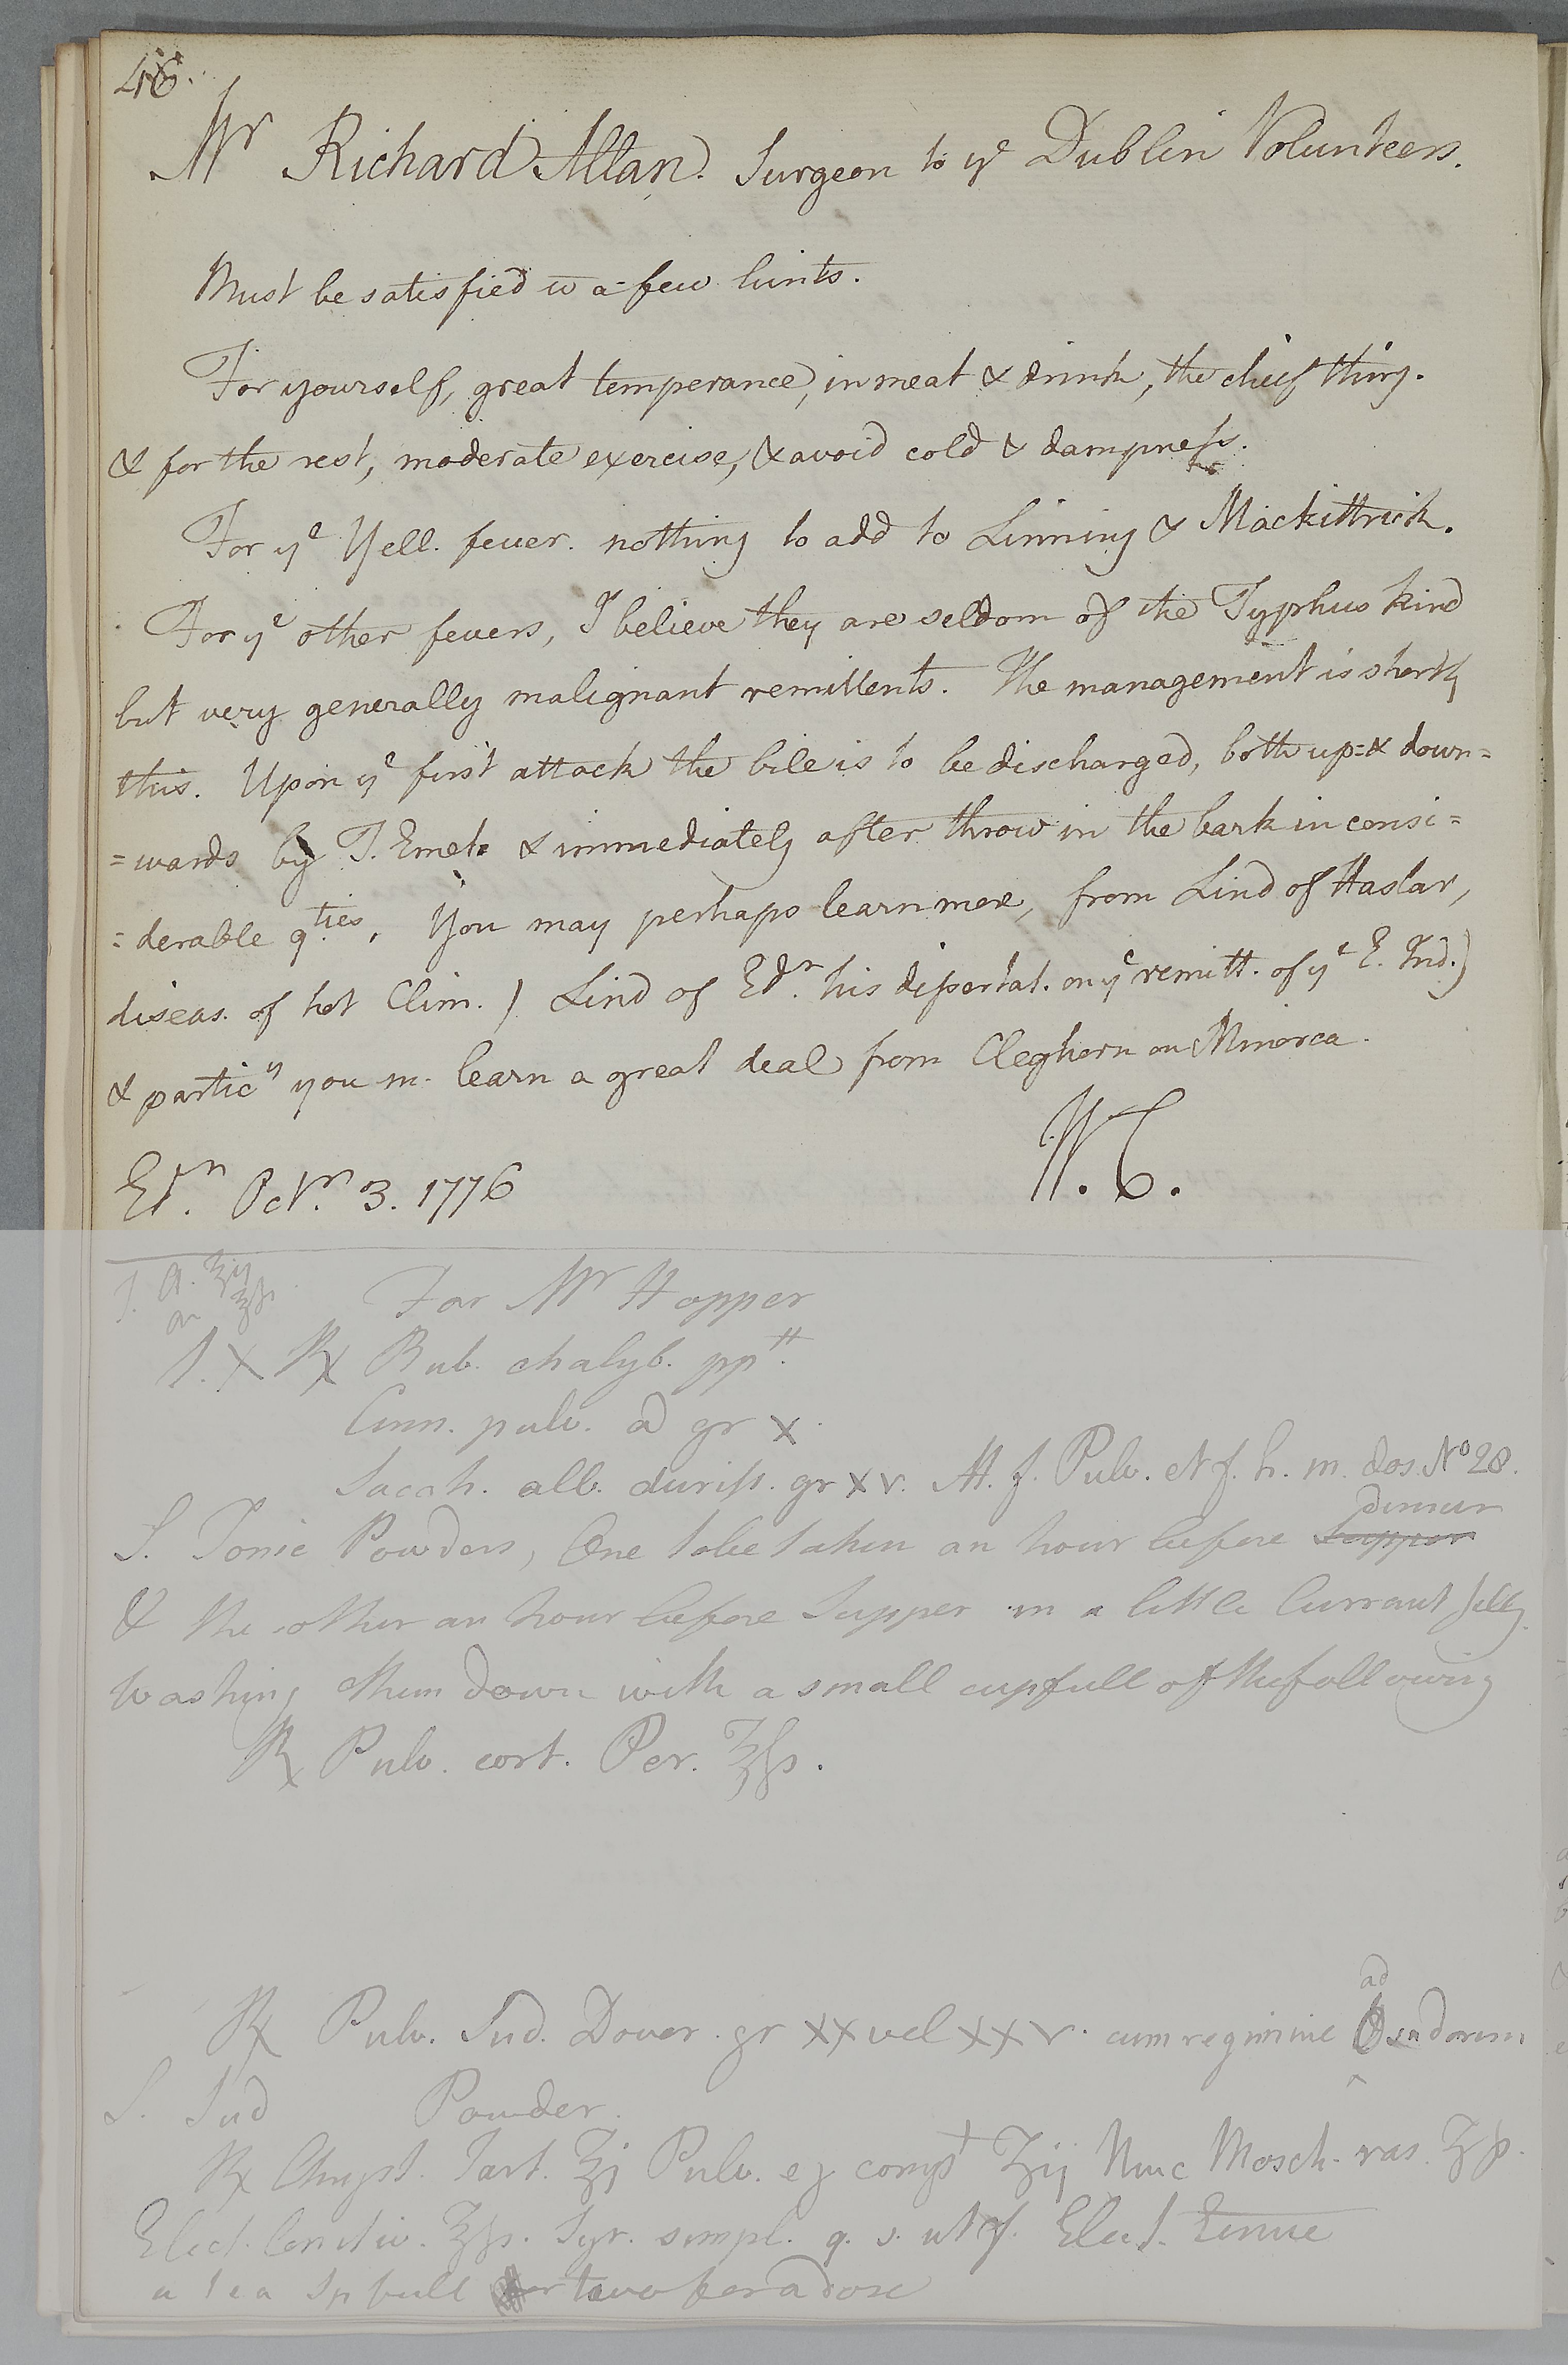 46.
Mr Richard Allan. Surgeon to ye Dublin Volunteers.
Must be satisfied w a few hints.
For yourself, great temperance, in meat & drink, the chief thing.
& for the rest, moderate exercise, & avoid cold & dampness.
For ye Yell. fever. nothing to add to Linning & Mackittrick.
For ye other fevers, I believe they are seldom of the Typhus kind
but very generally malignant remittents. The management is shortly
this. Upon ye first attack the bile is to be discharged, both up= & down=
=wards by T. Emet. & immediately after throw in the bark in consi=
=derable qties. You may perhaps learn more, from Lind of Haslar,
diseas. of hot Clim.) Lind of Edn. his dissertat. on ye remitt. of ye E. Ind.)
& particy you m. learn a great deal from Cleghorn on Minorca.
W. C.
Edn. Octr. 3. 1776
For Mr Hopper
1. X ℞ Rub. chalyb. pptt.
Cinn. pulv. a gr x.
Sacch. alb. duriss. gr xv. M. f. Pulv. et f. h. m. dos. No 28.
S. Tonic Powders, One to be taken an hour before supper dinner
& the other an hour before Supper in a little Currant Jelly.
washing them down with a small cupfull of the following
℞ Pulv. cort. Per. ℥ss.
℞ Pulv. Sud. Dover. gr xx vel xxv. cum regimine ad sudorem
S. Sud Powder.
℞ Chryst. Tart. ℥j Pulv. e compt ʒij Nuc Mosch. ras. ʒss.
Elect. Lenitiv. ℥ss. Syr. simpl. q. s. ut f. Elect. tenue
a tea Spfull or two for a dose